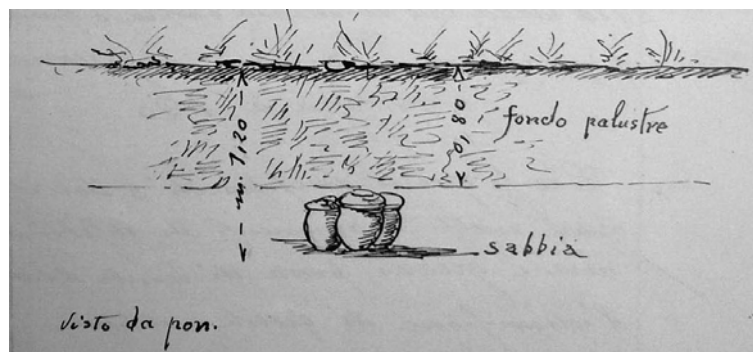 m. 1,20
0,80
fondo palustre
sabbia
Visto da pon.